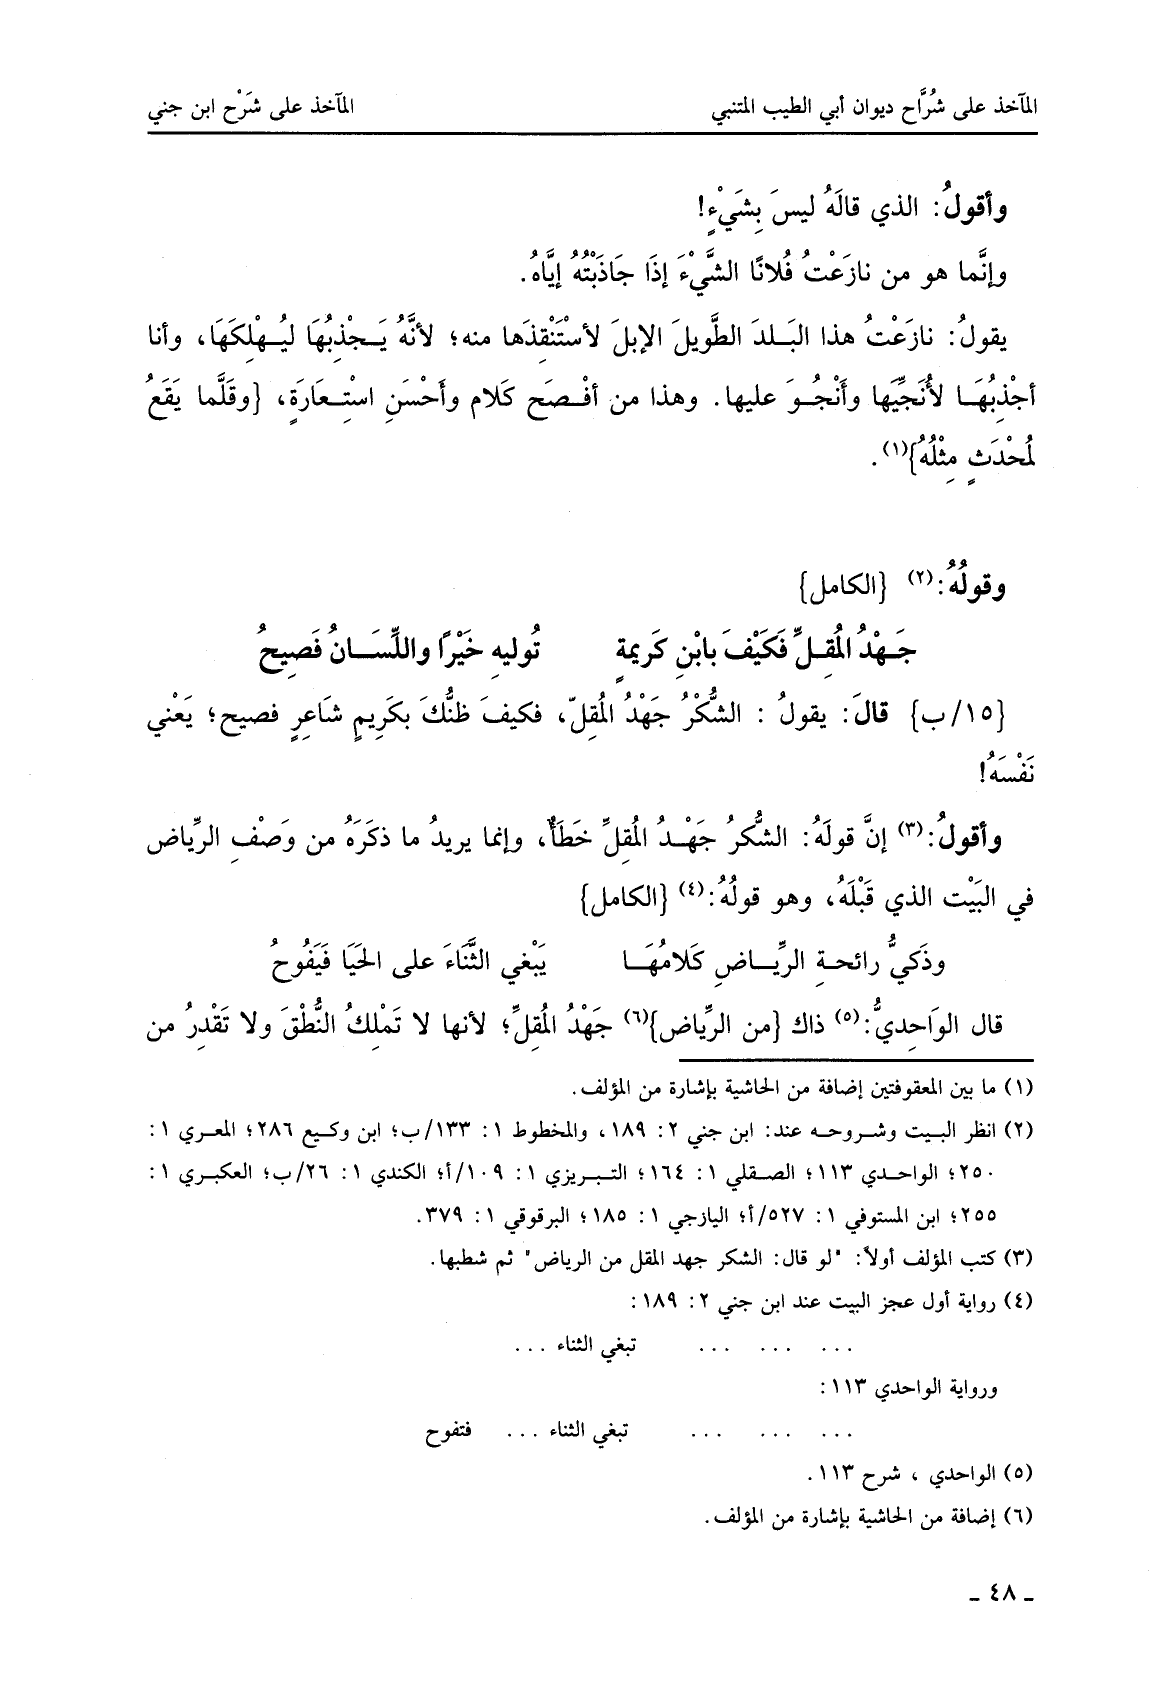 المآخذ على شُرَّاح ديوان أبي الطيب المتنبي المآخذ على شَرْح ابن جني
وأقولُ: الذي قالَهُ ليسَ بِشَيْءٍ!
وإنَّما هو من نازَعْتُ فُلانًا الشَّيْءَ إذَا جَاذَبْتُهُ إيَّاهُ.
يقولُ: نازَعْتُ هذا البَلدَ الطَّويلَ الإبلَ لأسْتَنْقِذَها منه؛ لأنَّهُ يَجْذبُهَا ليُهْلِكَهَا، وأنا
أجْذِبُهَا لأُنَجِّيَها وأَنْجُوَ عليها. وهذا من أفْصَحِ كَلام وأَحْسَنِ اسْتِعَارَةٍ، {وقَلَّما يَقَعُ
لمُحْدَثٍ مِثْلُهُ}(١).
وقولُهُ:(٢) {الكامل}
جَهْدُ المُقِلِّ فَكَيْفَ بابْنِ كَريمةٍ تُوليهِ خَيْرًا واللِّسَانُ فَصِيحُ
{١٥/ب} قالَ: يقولُ : الشُّكْرُ جَهْدُ المُقِلّ، فكيفَ ظنُّكَ بكَرِيمٍ شاعرٍ فصيح؛ يَعْني
نَفْسَهُ!
وأقولُ:(٣) إنَّ قولَهُ: الشُّكرُ جَهْدُ المُقلِّ خَطَأٌ، وإنما يريدُ ما ذكَرَهُ من وَصْفِ الرِّياض
في البَيْت الذي قَبْلَهُ، وهو قولُهُ:(٤) {الكامل}
وذَكيُّ رائحةِ الرِّياضِ كَلامُهَا يَبْغي الثَّنَاءَ على الحَيَا فَيَفُوحُ
قال الوَاحِديُّ:(٥) ذاك {من الرِّياض}(٦) جَهْدُ المُقلِّ؛ لأنها لا تَمْلِكُ النُّطْقَ ولا تَقْدرُ من
(١) ما بين المعقوفتين إضافة من الحاشية بإشارة من المؤلف.
(٢) انظر البيت وشروحه عند: ابن جني ٢: ١٨٩، والمخطوط ١: ١٣٣/ب؛ ابن وكيع ٢٨٦؛ المعري ١:
٢٥٠؛ الواحدي ١١٣؛ الصقلي ١: ١٦٤؛ التبريزي ١: ١٠٩/أ؛ الكندي ١: ٢٦/ب؛ العكبري ١:
٢٥٥؛ ابن المستوفي ١: ٥٢٧/أ؛ اليازجي ١: ١٨٥؛ البرقوقي ١: ٣٧٩.
(٣) كتب المؤلف أولاً: "لو قال: الشكر جهد المقل من الرياض" ثم شطبها.
(٤) رواية أول عجز البيت عند ابن جني ٢: ١٨٩:
... ... ... تبغي الثناء ...
ورواية الواحدي ١١٣:
... ... ... تبغي الثناء ... فتفوح
(٥) الواحدي ، شرح ١١٣.
(٦) إضافة من الحاشية بإشارة من المؤلف.
ـ ٤٨ ـ